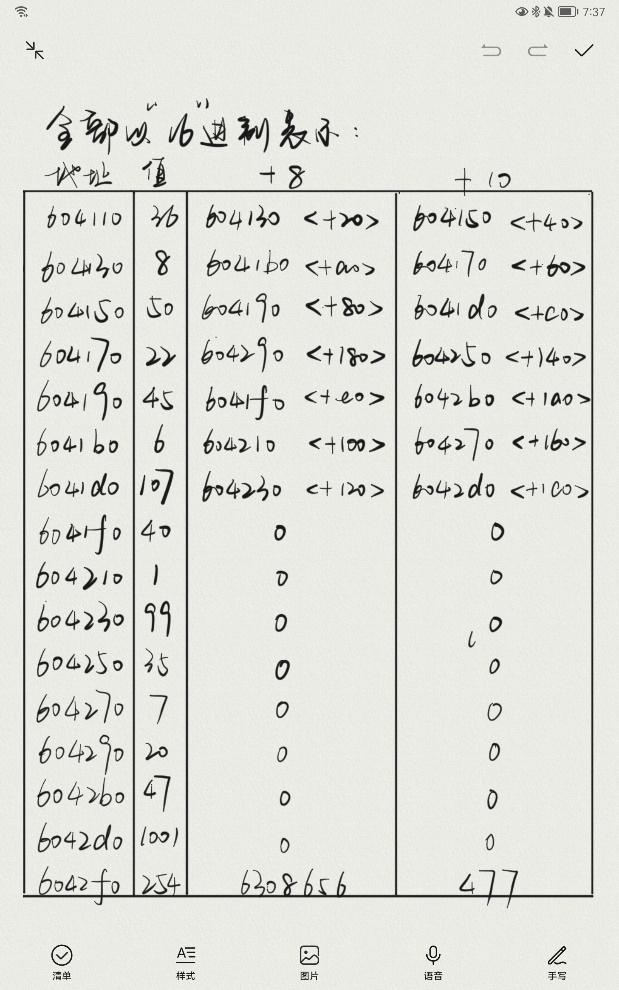 7:37
全部以"16"进制表示：
地址 值 +8 +10
604110 36 604130 <+20> 604150 <+40>
604130 8 6041b0 <+a0> 604170 <+60>
604150 50 604190 <+80> 6041d0 <+c0>
604170 22 604290 <+180> 604250 <+140>
604190 45 6041f0 <+e0> 6042b0 <+1a0>
6041b0 6 604210 <+100> 604270 <+160>
6041d0 107 604230 <+120> 6042d0 <+1c0>
6041f0 40 0 0
604210 1 0 0
604230 99 0 0
604250 35 0 0
604270 7 0 0
604290 20 0 0
6042b0 47 0 0
6042d0 1001 0 0
6042f0 254 6308656 477
清单 样式 图片 语音 手写